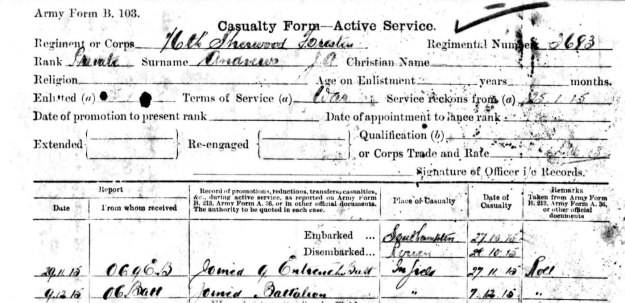 Army Form B. 103.
Casualty Form—Active Service.
Regiment or Corps 16th Sherwood Foresters Regimental Number 2683
Rank Private Surname Andrews J A Christian Name
Religion Age on Enlistment years months.
Enlisted (a) Terms of Service (a) War Service reckons from (a) 25.1.15
Date of promotion to present rank Date of appointment to lance rank
Extended Re-engaged Qualification (b)
or Corps Trade and Rate
Signature of Officer i/c Records.
Report Record of promotions, reductions, transfers, casualties, &c., during active service, as reported on Army Form B. 213, Army Form A. 36, or in other official documents. The authority to be quoted in each case. Place of Casualty Date of Casualty Remarks Taken from Army Form B. 213, Army Form A. 36, or other official documents
Date From whom received
Embarked ... Southampton 27.10.15
Disembarked ... 28.10.15
29.11.15 Joined 9 Entrench Batt In field 27.11.15 Roll
9.12.15 OC Batt Joined Battalion " 7.12.15 "